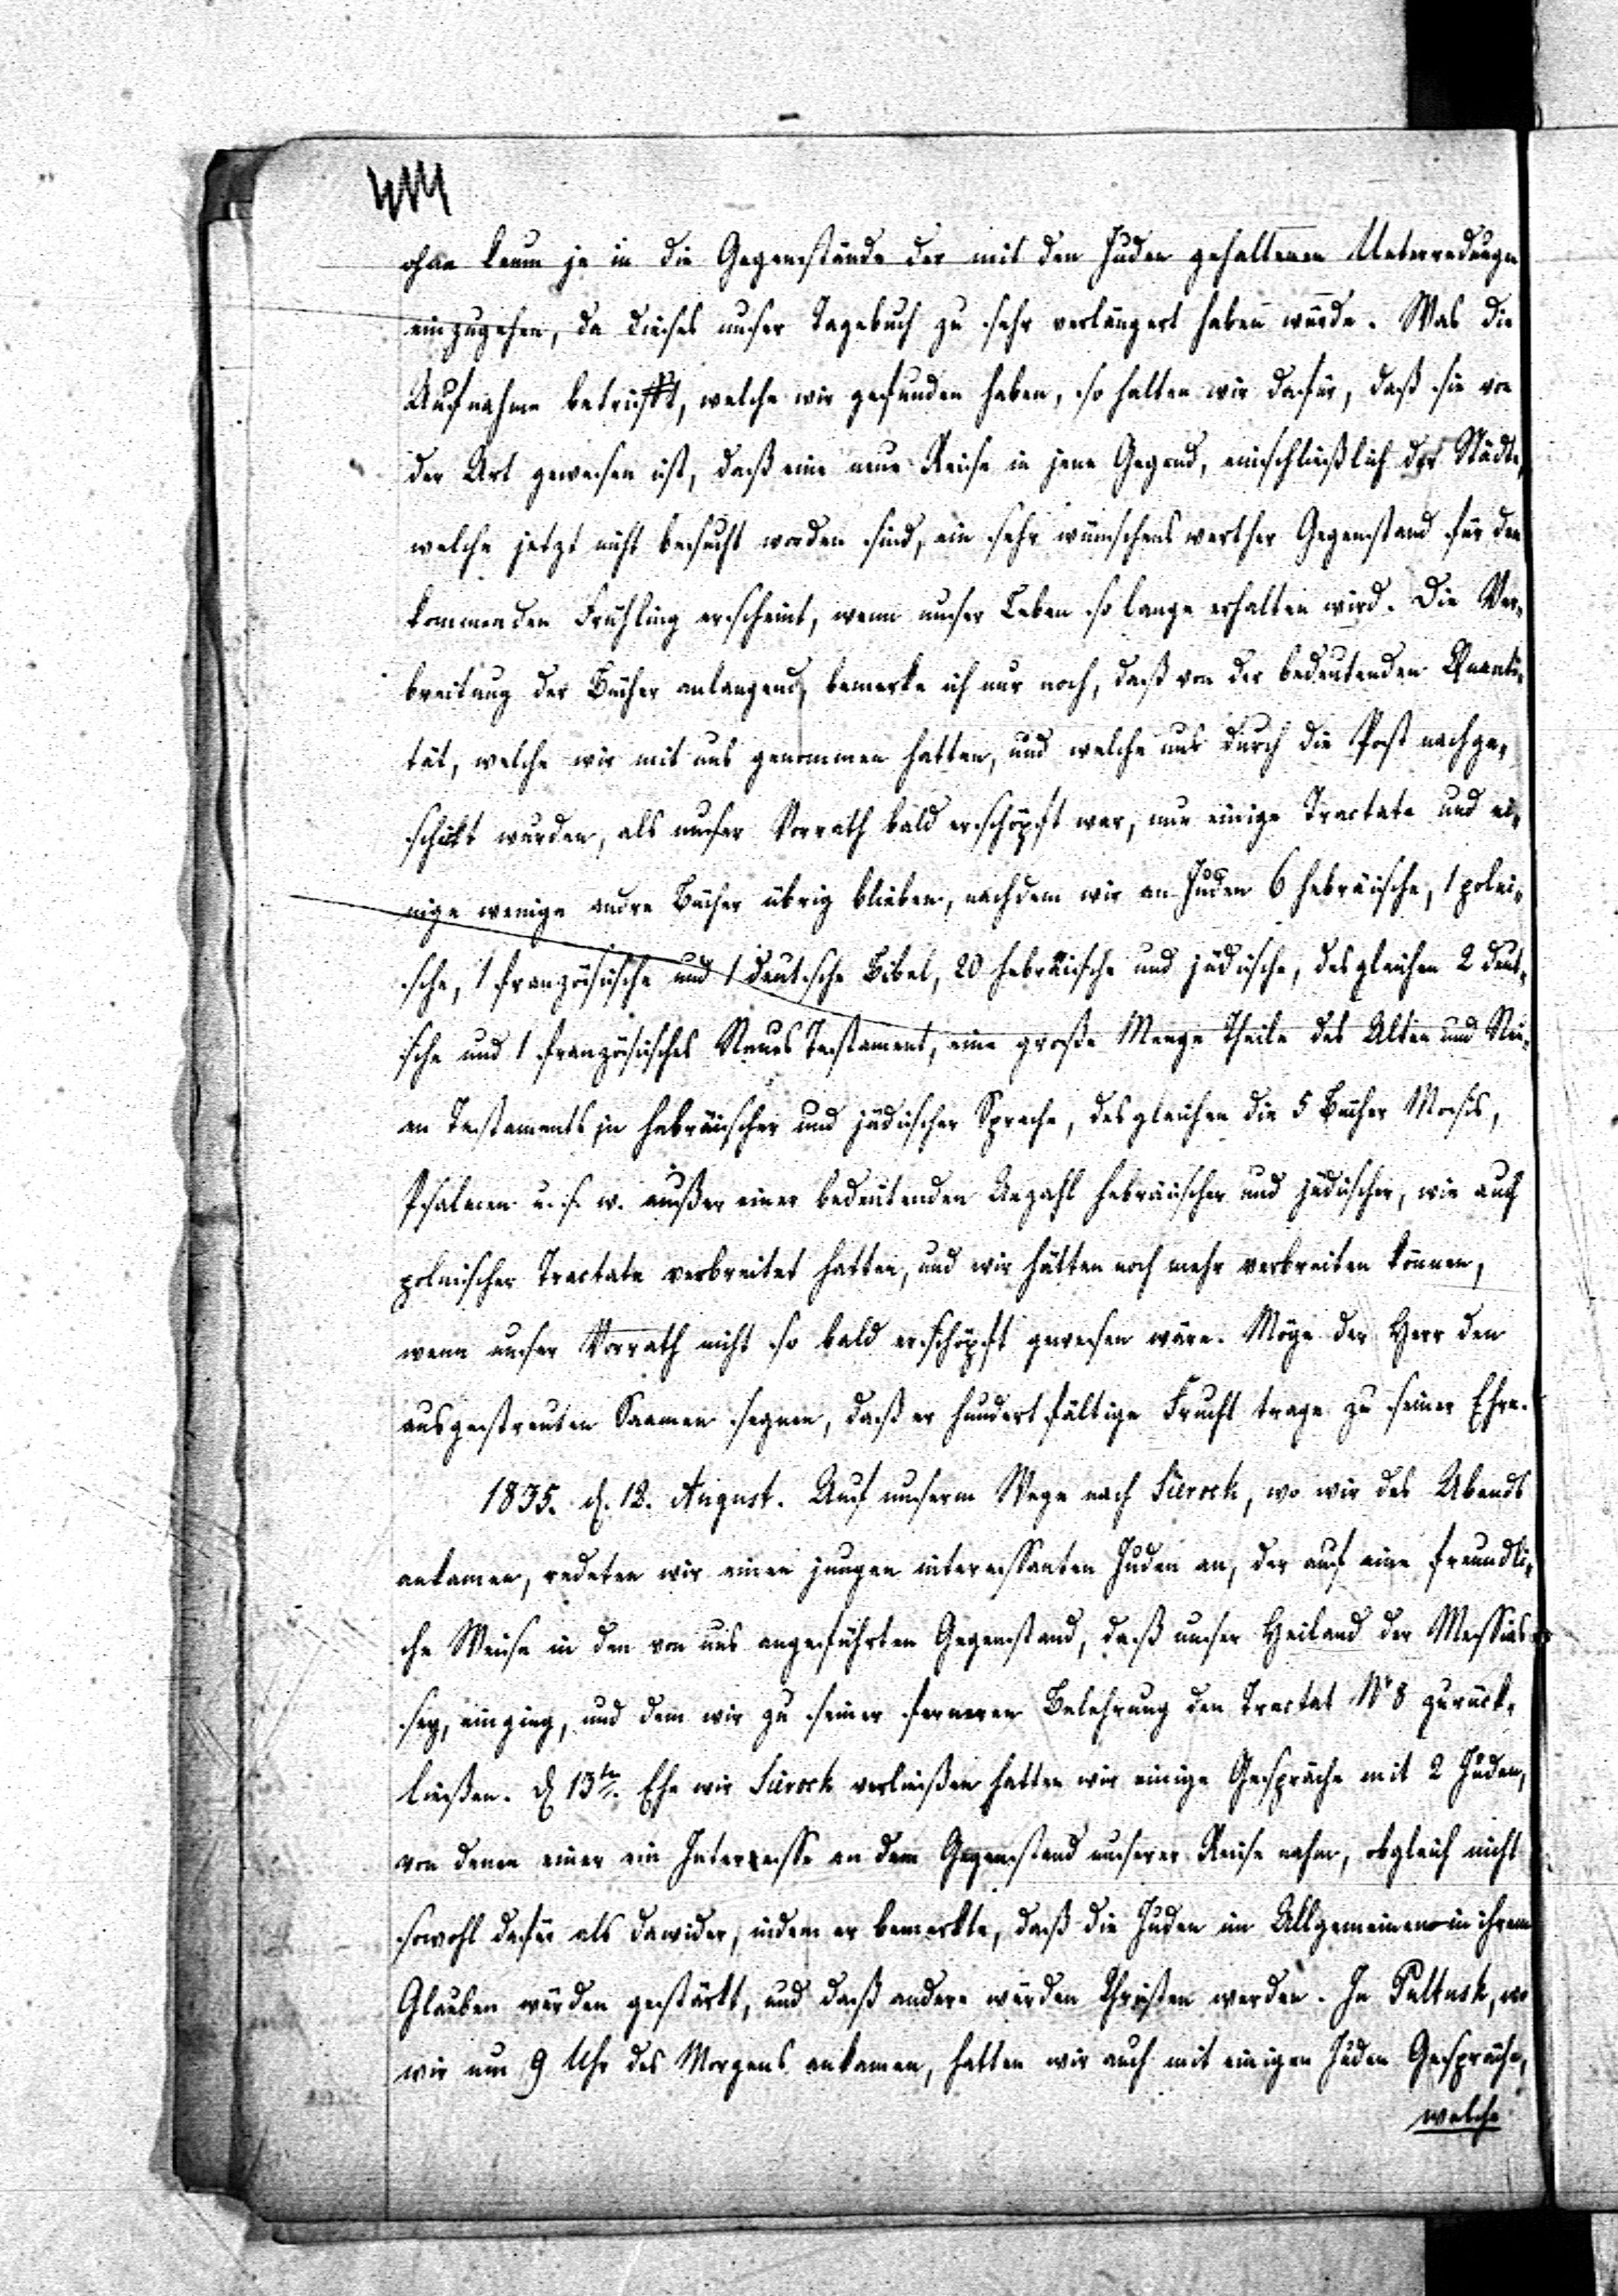 ohne kaum je in die Gegenstände der mit den Juden gehaltenen Unterredungen
einzugehen, da dieses unser Tagebuch zu sehr verlängert haben würde. Was die
Aufnahme betrifft, welche wir gefunden haben, so halten wir dafür, daß sie von
der Art gewesen ist, daß eine neue Reise in jene Gegend, einschließlich der Städte,
welche jetzt nicht besucht worden sind, ein sehr wünschens werther Gegenstand für den
kommenden Frühling erscheint, wenn unser Leben so lange erhalten wird. Die Ver-
breitung der Bücher anlangend, bemerke ich nur noch, daß von der bedeutenden Quanti-
tät, welche wir mit uns genommen hatten, und welche uns durch die Post nachge-
schickt wurden, als unser Vorrath bald erschöpft war, nur einige Tractate und ei-
nige wenige andre Bücher übrig blieben, nachdem wir an Juden 6 hebräische, 1 polni-
sche, 1 französische und 1 deutsche Bibel, 20 hebräische und jüdische, desgleichen 2 deut-
sche und 1 französisches Neues Testament, eine große Menge Theile des Alten und Neu-
en Testaments in hebräischer und jüdischer Sprache, desgleichen die 5 Bücher Mosis,
Psalmen u. s. w. außer einer bedeutenden Anzahl hebräischer und jüdischer, wie auch
polnischer Tractate verbreitet hatten, und wir hätten noch mehr verbreiten können,
wenn unser Vorrath nicht so bald erschöpft gewesen wäre. Möge der Herr den
ausgestreuten Saamen segnen, daß er hundertfältige Frucht trage zu seiner Ehre.
1835. d. 12. August. Auf unserm Wege nach Sierock, wo wir des Abends
ankamen, redeten wir einen jungen interessanten Juden an, der auf eine freundli-
che Weise in den von uns angeführten Gegenstand, daß unser Heiland der Messias
sey, einging, und dem wir zu seiner ferneren Belehrung den Tractat No 8 zurück-
ließen. d 13ten. Ehe wir Sierock verließen hatten wir einige Gespräche mit 2 Juden,
von denen einer ein Interesse an dem Gegenstand unserer Reise nahm, obgleich nicht
sowohl dafür als dawider, indem er bemerkte, daß die Juden im Allgemeinen in ihrem
Glauben würden gestärkt, und daß andere würden Christen werden. In Pultusk, wo
wir um 9 Uhr des Morgens ankamen, hatten wir auch mit einigen Juden Gespräche,
welche